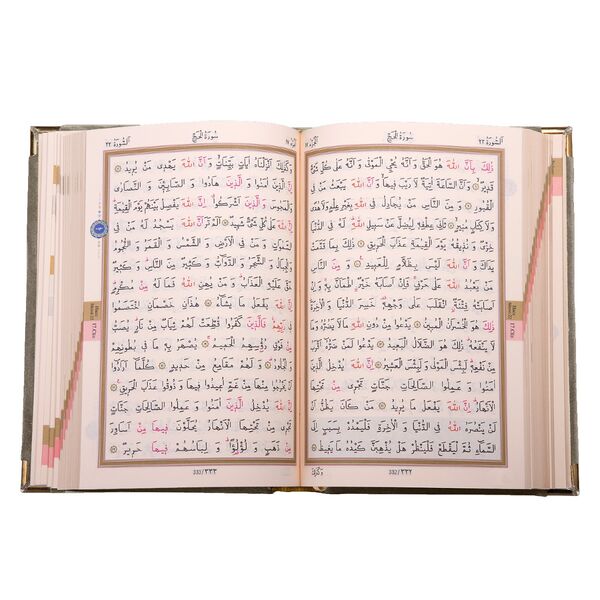 اَلسُّورَةُ ٢٢
سُورَةُ الْحَجِّ
ذٰلِكَ بِاَنَّ اللّٰهَ هُوَ الْحَقُّ وَاَنَّهُ يُحْيِ الْمَوْتٰى وَاَنَّهُ عَلٰى كُلِّ شَيْءٍ
قَدِيرٌ ۞ وَاَنَّ السَّاعَةَ اٰتِيَةٌ لَا رَيْبَ فِيهَا وَاَنَّ اللّٰهَ يَبْعَثُ مَنْ فِي
الْقُبُورِ ۞ وَمِنَ النَّاسِ مَنْ يُجَادِلُ فِي اللّٰهِ بِغَيْرِ عِلْمٍ وَلَا هُدًى
وَلَا كِتَابٍ مُنِيرٍ ۞ ثَانِيَ عِطْفِهِ لِيُضِلَّ عَنْ سَبِيلِ اللّٰهِ لَهُ فِي الدُّنْيَا
خِزْيٌ وَنُذِيقُهُ يَوْمَ الْقِيٰمَةِ عَذَابَ الْحَرِيقِ ۞ ذٰلِكَ بِمَا قَدَّمَتْ
يَدَاكَ وَاَنَّ اللّٰهَ لَيْسَ بِظَلَّامٍ لِلْعَبِيدِ ۞ وَمِنَ النَّاسِ مَنْ يَعْبُدُ
اللّٰهَ عَلٰى حَرْفٍ فَاِنْ اَصَابَهُ خَيْرٌ اطْمَاَنَّ بِهِ وَاِنْ
اَصَابَتْهُ فِتْنَةٌ انْقَلَبَ عَلٰى وَجْهِهِ خَسِرَ الدُّنْيَا وَالْاٰخِرَةَ
ذٰلِكَ هُوَ الْخُسْرَانُ الْمُبِينُ ۞ يَدْعُوا مِنْ دُونِ اللّٰهِ مَا لَا يَضُرُّهُ وَمَا
لَا يَنْفَعُهُ ذٰلِكَ هُوَ الضَّلَالُ الْبَعِيدُ ۞ يَدْعُوا لَمَنْ ضَرُّهُ اَقْرَبُ
مِنْ نَفْعِهِ لَبِئْسَ الْمَوْلٰى وَلَبِئْسَ الْعَشِيرُ ۞ اِنَّ اللّٰهَ يُدْخِلُ الَّذِينَ
اٰمَنُوا وَعَمِلُوا الصَّالِحَاتِ جَنَّاتٍ تَجْرِي مِنْ تَحْتِهَا
الْاَنْهَارُ اِنَّ اللّٰهَ يَفْعَلُ مَا يُرِيدُ ۞ مَنْ كَانَ يَظُنُّ اَنْ لَنْ
يَنْصُرَهُ اللّٰهُ فِي الدُّنْيَا وَالْاٰخِرَةِ فَلْيَمْدُدْ بِسَبَبٍ اِلَى
السَّمَاءِ ثُمَّ لْيَقْطَعْ فَلْيَنْظُرْ هَلْ يُذْهِبَنَّ كَيْدُهُ مَا يَغِيظُ ۞
332/٣٣٢
اَلسُّورَةُ ٢٢
سُورَةُ الْحَجِّ
وَكَذٰلِكَ اَنْزَلْنَاهُ اٰيَاتٍ بَيِّنَاتٍ وَاَنَّ اللّٰهَ يَهْدِي مَنْ يُرِيدُ ۞
اِنَّ الَّذِينَ اٰمَنُوا وَالَّذِينَ هَادُوا وَالصَّابِئِينَ وَالنَّصَارٰى
وَالْمَجُوسَ وَالَّذِينَ اَشْرَكُوا اِنَّ اللّٰهَ يَفْصِلُ بَيْنَهُمْ يَوْمَ الْقِيٰمَةِ
اِنَّ اللّٰهَ عَلٰى كُلِّ شَيْءٍ شَهِيدٌ ۞ اَلَمْ تَرَ اَنَّ اللّٰهَ يَسْجُدُ لَهُ مَنْ فِي
السَّمٰوَاتِ وَمَنْ فِي الْاَرْضِ وَالشَّمْسُ وَالْقَمَرُ وَالنُّجُومُ
وَالْجِبَالُ وَالشَّجَرُ وَالدَّوَابُّ وَكَثِيرٌ مِنَ النَّاسِ وَكَثِيرٌ
حَقَّ عَلَيْهِ الْعَذَابُ وَمَنْ يُهِنِ اللّٰهُ فَمَا لَهُ مِنْ مُكْرِمٍ
اِنَّ اللّٰهَ يَفْعَلُ مَا يَشَاءُ ۞ هٰذَانِ خَصْمَانِ اخْتَصَمُوا
فِي رَبِّهِمْ فَالَّذِينَ كَفَرُوا قُطِّعَتْ لَهُمْ ثِيَابٌ مِنْ نَارٍ يُصَبُّ
مِنْ فَوْقِ رُؤُسِهِمُ الْحَمِيمُ ۞ يُصْهَرُ بِهِ مَا فِي بُطُونِهِمْ
وَالْجُلُودُ ۞ وَلَهُمْ مَقَامِعُ مِنْ حَدِيدٍ ۞ كُلَّمَا اَرَادُوا
اَنْ يَخْرُجُوا مِنْهَا مِنْ غَمٍّ اُعِيدُوا فِيهَا وَذُوقُوا عَذَابَ الْحَرِيقِ ۞
اِنَّ اللّٰهَ يُدْخِلُ الَّذِينَ اٰمَنُوا وَعَمِلُوا الصَّالِحَاتِ جَنَّاتٍ
تَجْرِي مِنْ تَحْتِهَا الْاَنْهَارُ يُحَلَّوْنَ فِيهَا مِنْ اَسَاوِرَ
مِنْ ذَهَبٍ وَلُؤْلُؤًا وَلِبَاسُهُمْ فِيهَا حَرِيرٌ ۞
333/٣٣٣